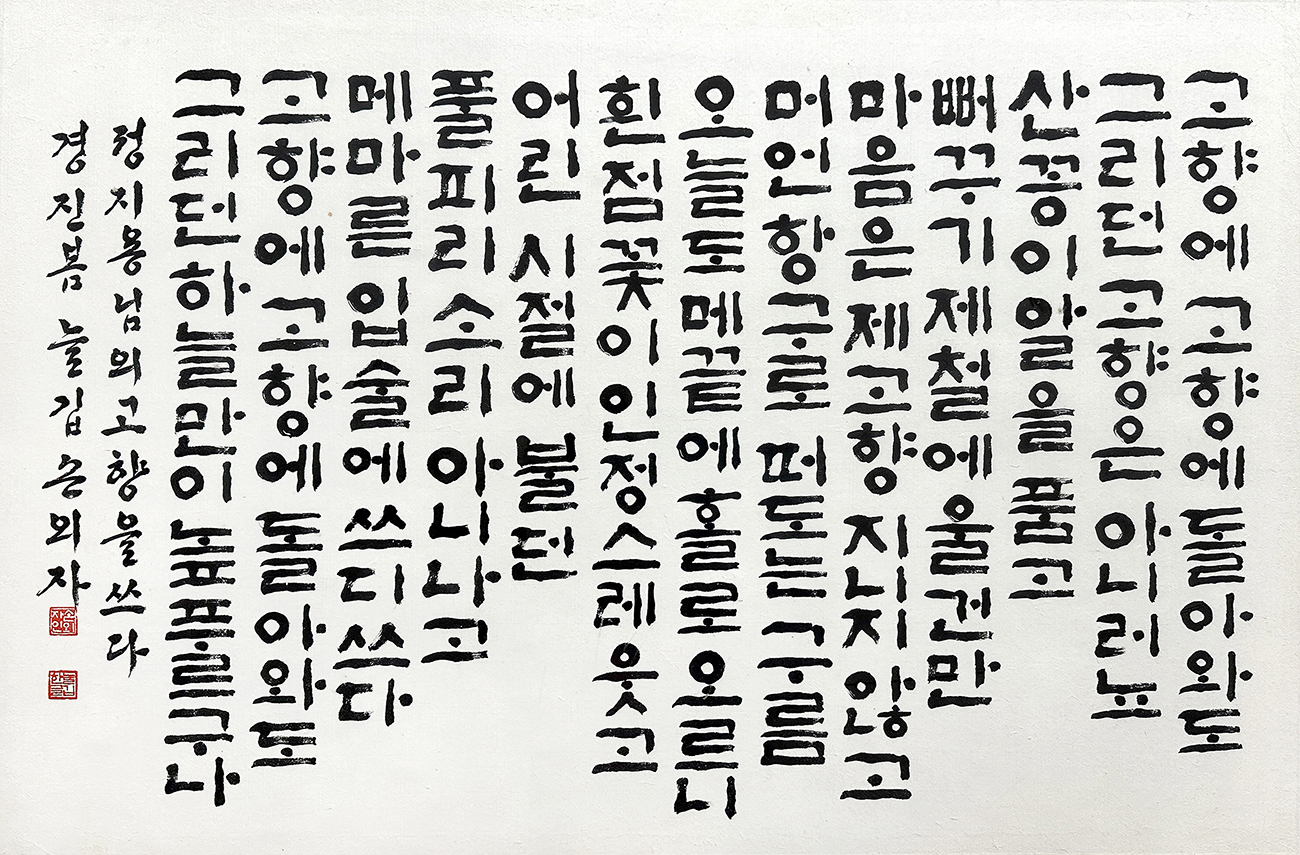 고향에 고향에 돌아와도
그리던 고향은 아니러뇨
산꽁이 알을 품고
뻐꾸기 제철에 울건만
마음은 제고향 지니지 않고
머언 항구로 떠도는 구름
오늘도 메끝에 홀로 오르니
흰점꽃이 인정스레 웃고
어린 시절에 불던
풀피리 소리 아니나고
메마른 입술에 쓰디쓰다
고향에 고향에 돌아와도
그리던 하늘만이 높푸르구나
정지용님의 고향을 쓰다
경진봄 늘깁 손외자